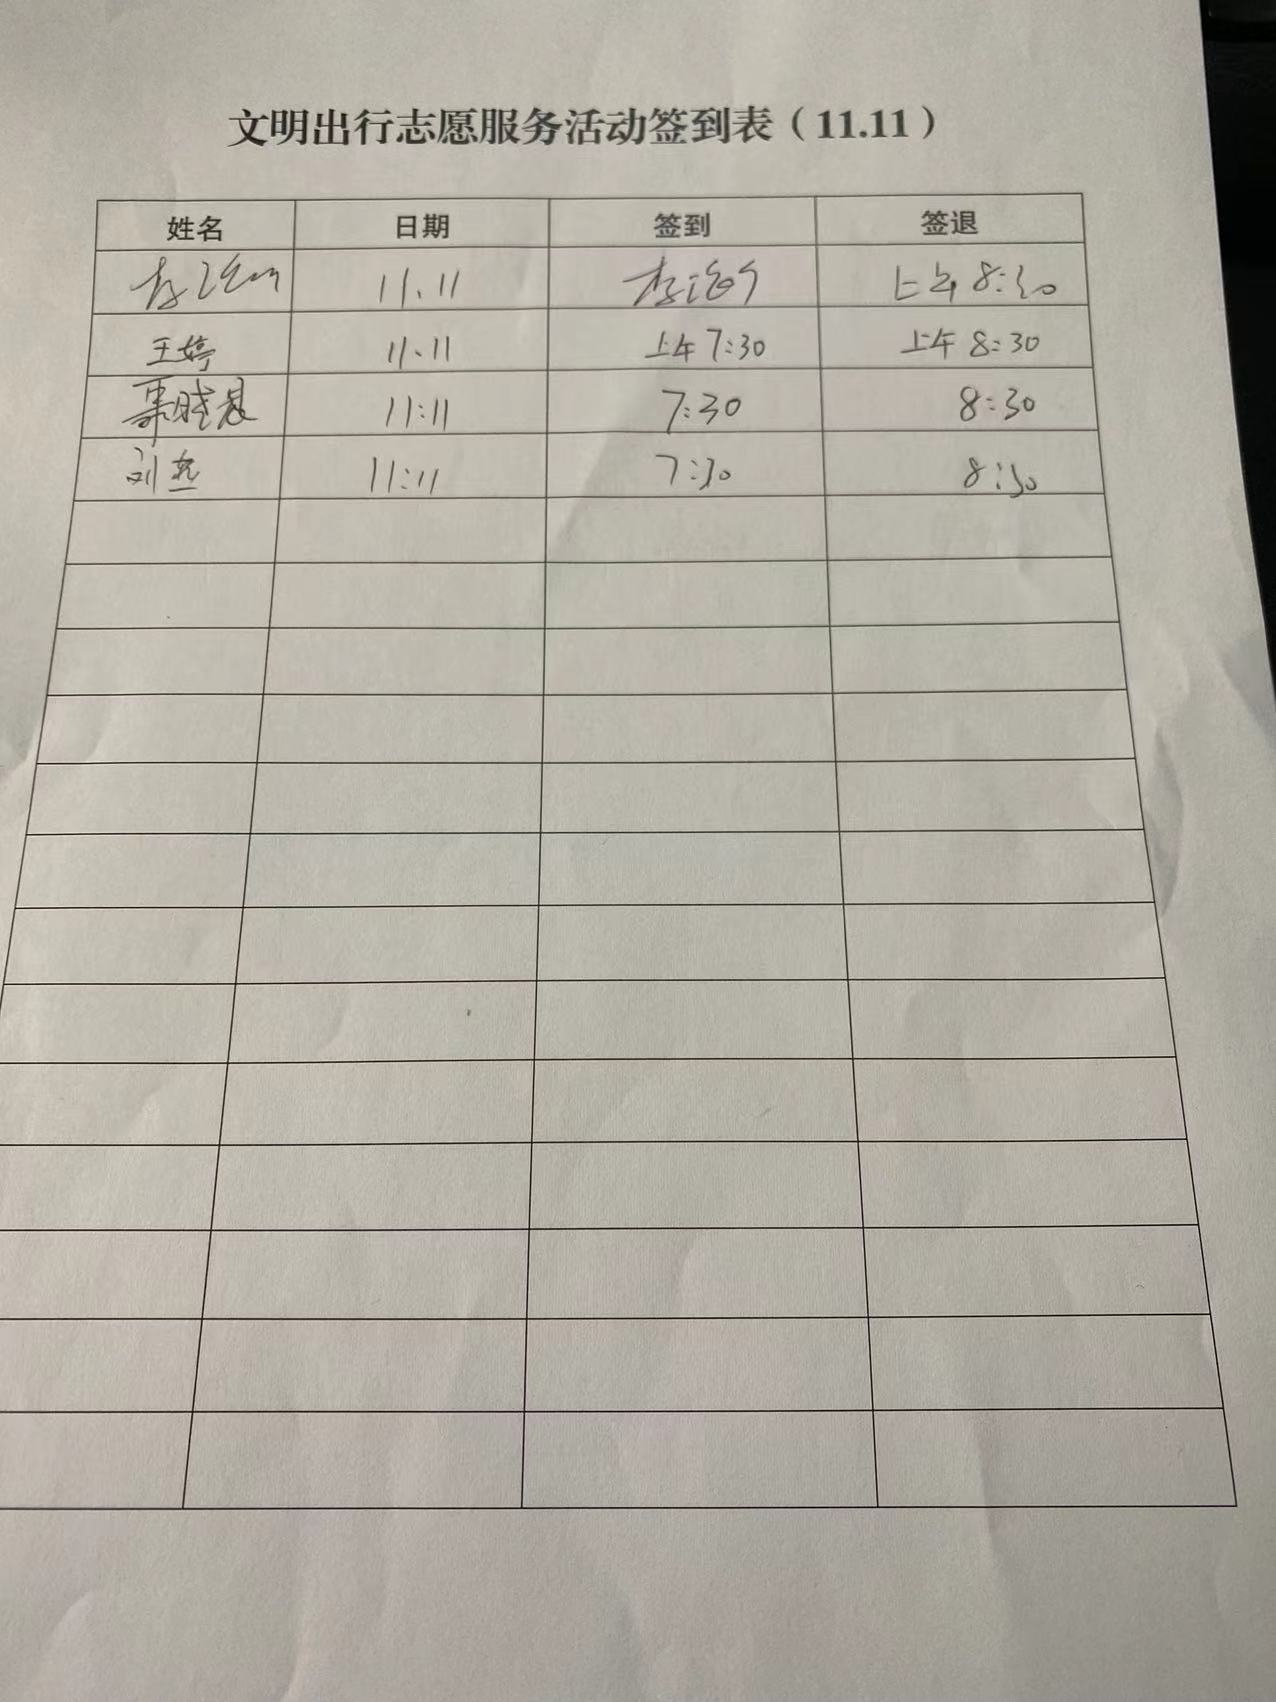 文明出行志愿服务活动签到表（11.11）
姓名 日期 签到 签退
李 11.11 李 上午 8:30
王婷 11.11 上午 7:30 上午 8:30
栗晓晨 11:11 7:30 8:30
刘杰 11:11 7:30 8:30